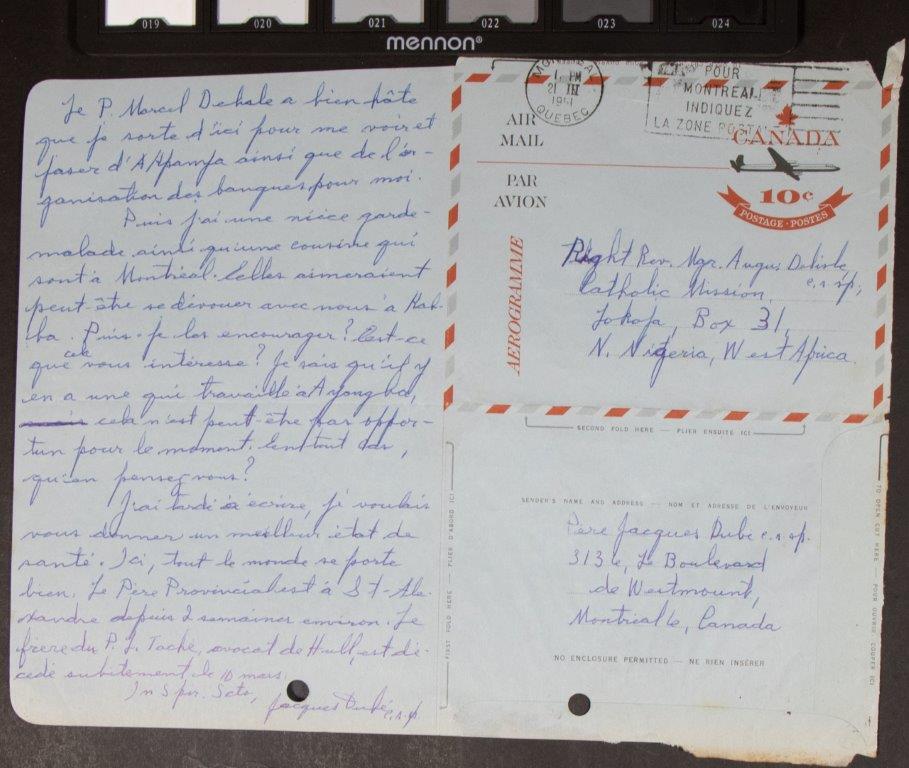 019 020 021 022 023 024
mennon®
Le P. Marcel Delisle a bien hâte
que je sorte d'ici pour me voir et
jaser d'A'Apamfa ainsi que de l'or-
ganisation des banques pour moi.
Puis j'ai une nièce garde-
malade ainsi qu'une cousine qui
sont à Montréal. Celles aimeraient
peut-être se dévouer avec nous à Kab-
ba. Puis-je les encourager? Est-ce
que cela vous intéresse? Je sais qu'il y
en a une qui travaille à Ayangba,
cela n'est peut-être pas oppor-
tun pour le moment. En tout cas,
qu'en pensez vous?
J'ai tardé à écrire, je voulais
vous donner un meilleur état de
santé. Ici, tout le monde se porte
bien. Le Père Provincial est à St-Ale-
xandre depuis 2 semaines environ. Le
frère du P. L. Taché, avocat de Hull, est dé-
cédé subitement le 10 mars.
In Spir. Scto,
Jacques Dubé, c.s.sp.
MONTREAL
1 PM
21 III
1961
QUEBEC
POUR
MONTREAL
INDIQUEZ
LA ZONE POSTALE
AIR
MAIL
CANADA
PAR
AVION
10¢
POSTAGE·POSTES
AEROGRAMME
Right Rev. Mgr. Augus Delisle, c.s.sp.,
Catholic Mission,
Lokoja, Box 31,
N. Nigeria, West Africa.
SECOND FOLD HERE — PLIER ENSUITE ICI
SENDER'S NAME AND ADDRESS — NOM ET ADRESSE DE L'ENVOYEUR
Père Jacques Dubé c.s.sp.
3136, Le Boulevard
de Westmount,
Montréal 6, Canada
NO ENCLOSURE PERMITTED — NE RIEN INSÉRER
FIRST FOLD HERE — PLIER D'ABORD ICI
TO OPEN CUT HERE — POUR OUVRIR COUPER ICI